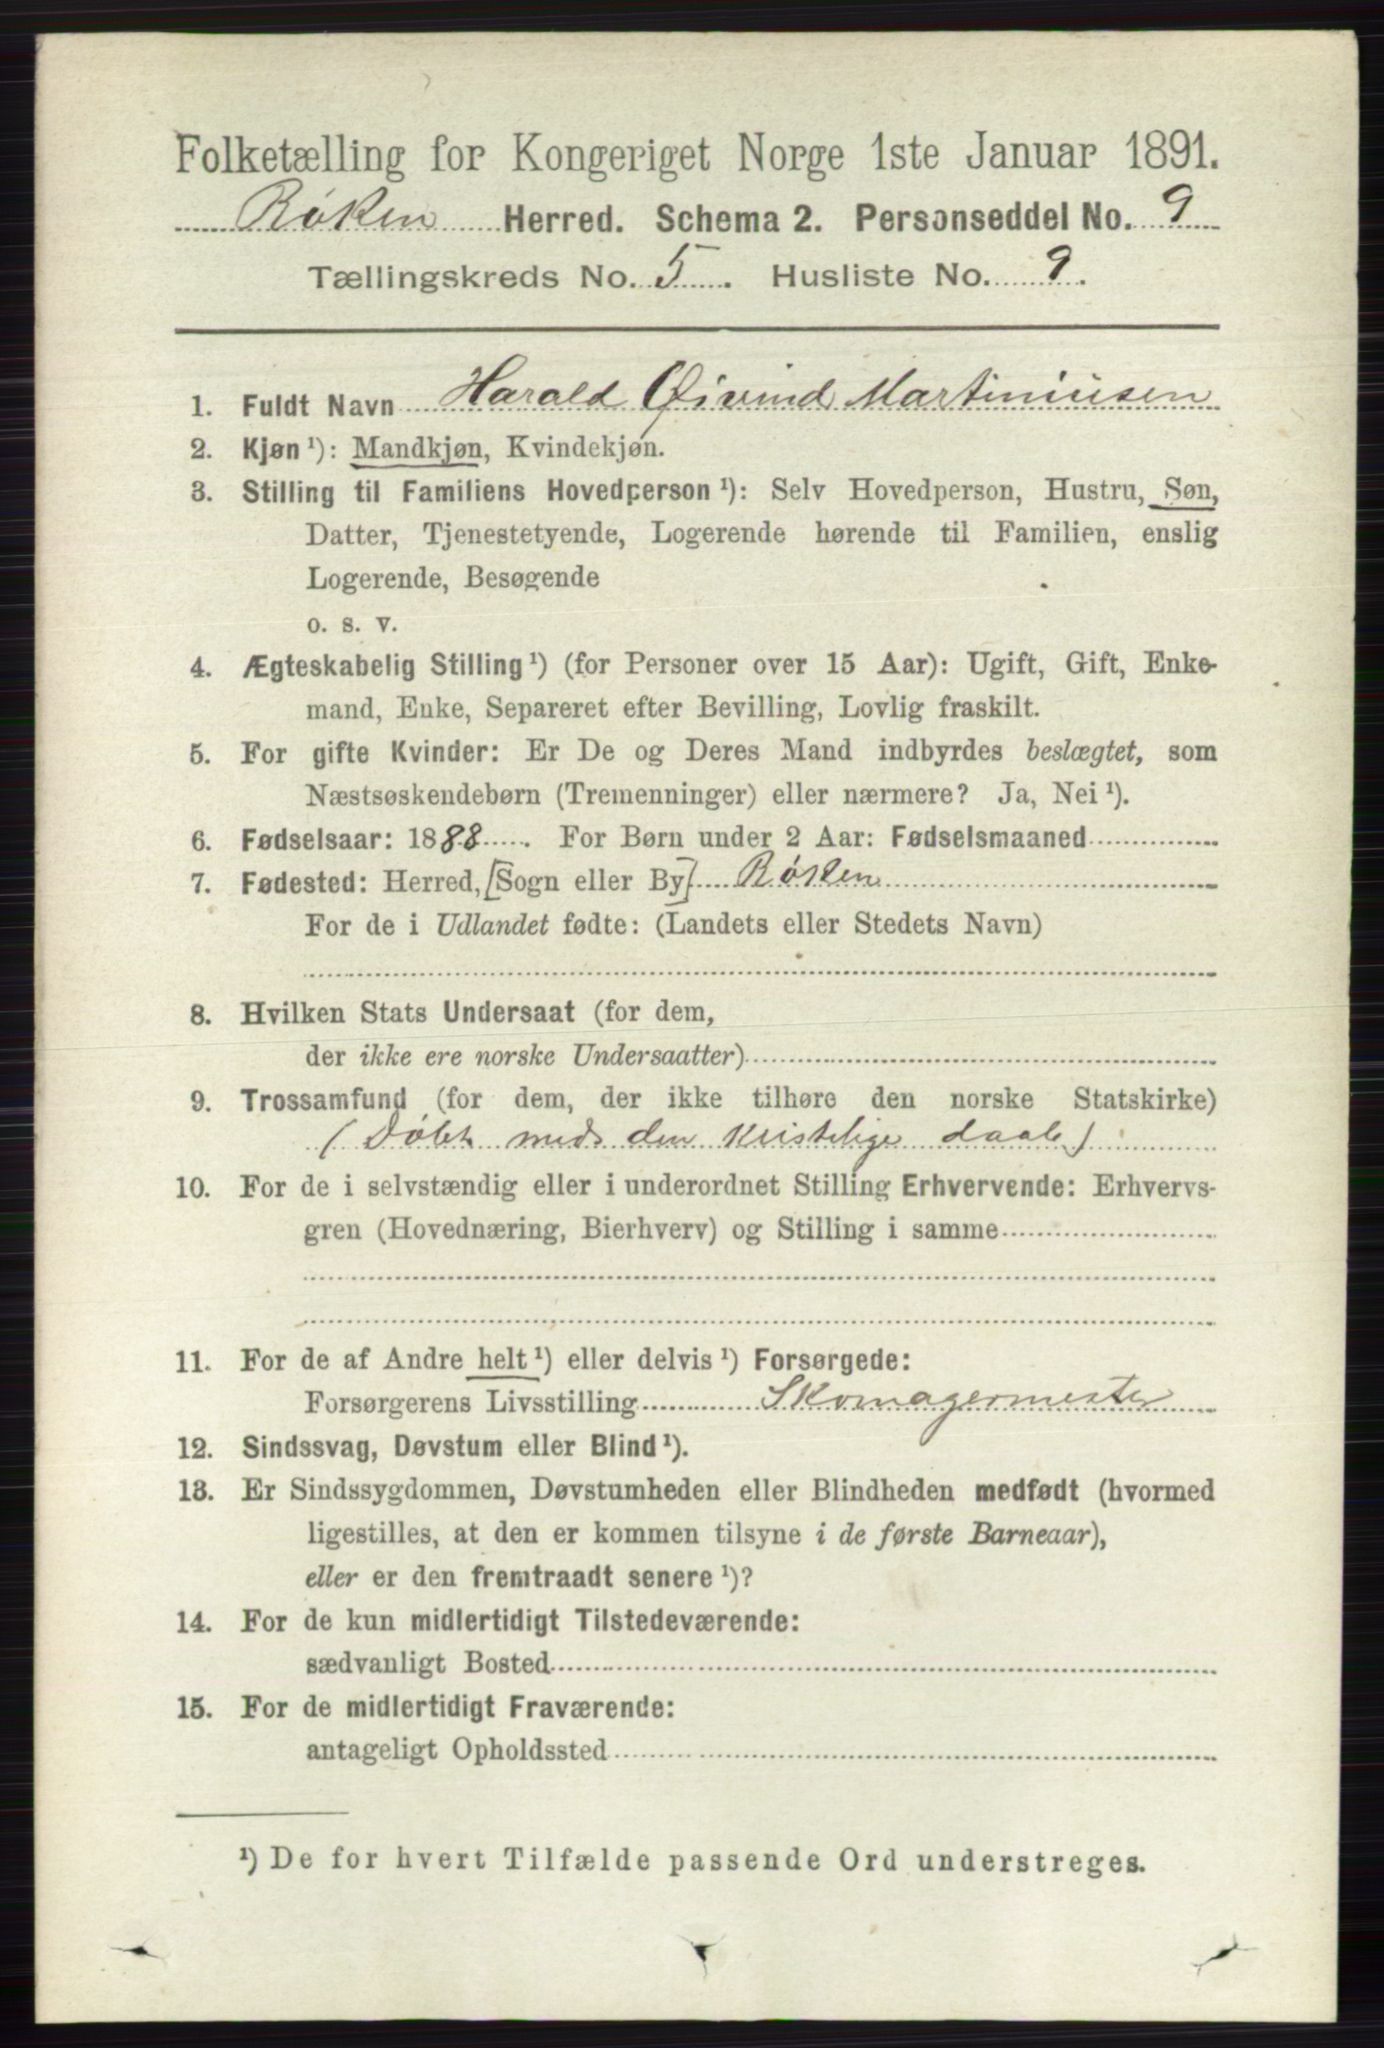 Folketælling for Kongeriget Norge 1ste Januar 1891.
Røken Herred. Schema 2. Personseddel No. 9
Tællingskreds No. 5. Husliste No. 9.
1. Fuldt Navn Harald Øivind Martiniusen
2. Kjøn ¹): Mandkjøn, Kvindekjøn.
3. Stilling til Familiens Hovedperson ¹): Selv Hovedperson, Hustru, Søn,
Datter, Tjenestetyende, Logerende hørende til Familien, enslig
Logerende, Besøgende
o. s. v.
4. Ægteskabelig Stilling ¹) (for Personer over 15 Aar): Ugift, Gift, Enke-
mand, Enke, Separeret efter Bevilling, Lovlig fraskilt.
5. For gifte Kvinder: Er De og Deres Mand indbyrdes beslægtet, som
Næstsøskendebørn (Tremenninger) eller nærmere? Ja, Nei ¹).
6. Fødselsaar: 1888. For Børn under 2 Aar: Fødselsmaaned
7. Fødested: Herred, [Sogn eller By] Røken
For de i Udlandet fødte: (Landets eller Stedets Navn)
8. Hvilken Stats Undersaat (for dem,
der ikke ere norske Undersaatter)
9. Trossamfund (for dem, der ikke tilhøre den norske Statskirke)
(Døbt med den kristelige daab)
10. For de i selvstændig eller i underordnet Stilling Erhvervende: Erhvervs-
gren (Hovednæring, Bierhverv) og Stilling i samme
11. For de af Andre helt ¹) eller delvis ¹) Forsørgede:
Forsørgerens Livsstilling Skomagermester
12. Sindssvag, Døvstum eller Blind ¹).
13. Er Sindssygdommen, Døvstumheden eller Blindheden medfødt (hvormed
ligestilles, at den er kommen tilsyne i de første Barneaar),
eller er den fremtraadt senere ¹)?
14. For de kun midlertidigt Tilstedeværende:
sædvanligt Bosted
15. For de midlertidigt Fraværende:
antageligt Opholdssted
¹) De for hvert Tilfælde passende Ord understreges.